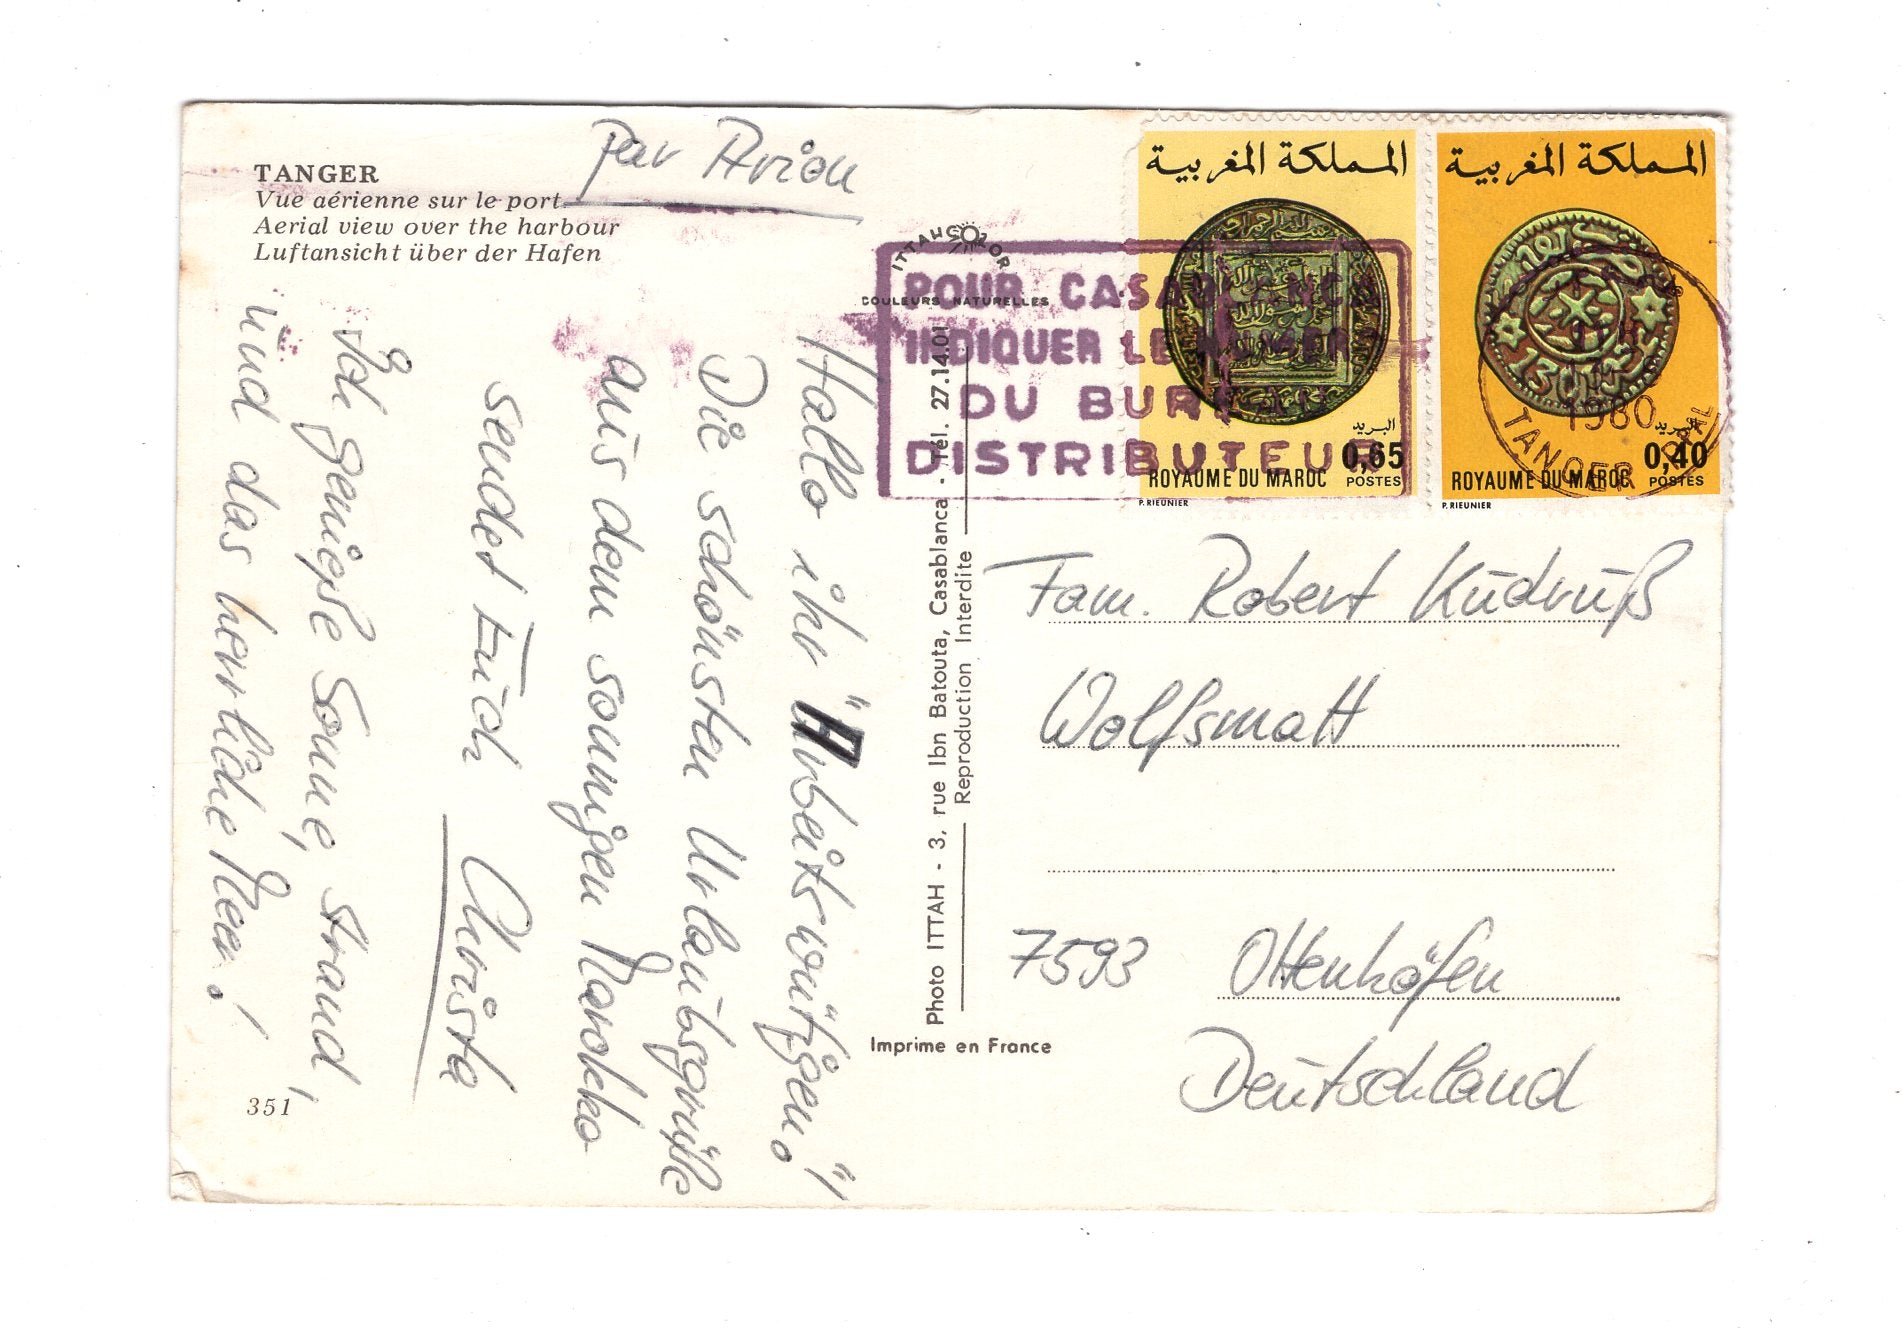 TANGER
Vue aérienne sur le port
Aerial view over the harbour
Luftansicht über der Hafen
Par Avion
ITTAHCOLOR
COULEURS NATURELLES
POUR CASABLANCA
INDIQUER LE NUMERO
DU BUREAU
DISTRIBUTEUR
المملكة المغربية
البريد
0,65
ROYAUME DU MAROC POSTES
P. RIEUNIER
المملكة المغربية
البريد
0,40
ROYAUME DU MAROC POSTES
P. RIEUNIER
1980
TANGER
Hallo ihr "Arbeitswütigen"!
Die schönsten Urlaubsgrüße
aus dem sonnigen Marokko
sendet Euch
Christa
Ich genieße Sonne, Strand,
und das herrliche Meer!
Photo ITTAH - 3, rue Ibn Batouta, Casablanca - Tél. 27.14.01
Reproduction Interdite
Imprime en France
351
Fam. Robert Kudruß
Wolfsmatt
7593 Ottenhöfen
Deutschland